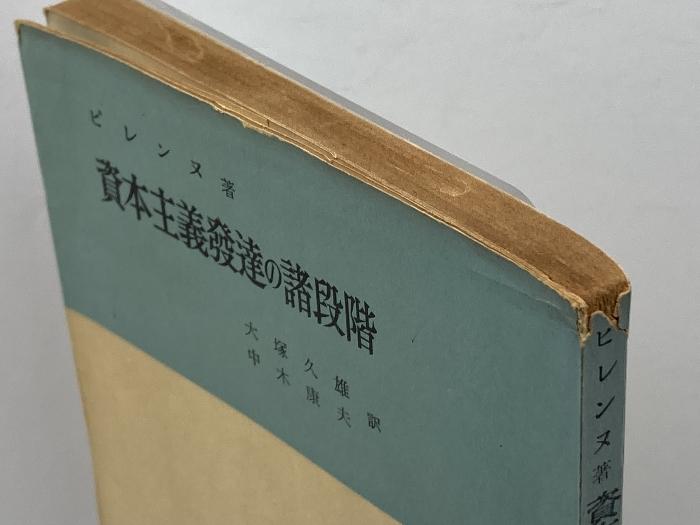 ピレンヌ著
資本主義發達の諸段階
大塚久雄
中木康夫 訳
ピレンヌ著 資